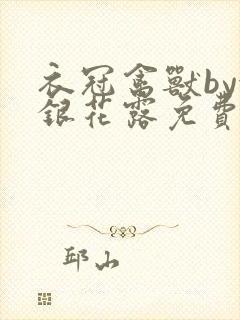 衣冠禽獸by
銀花露免費
邱山